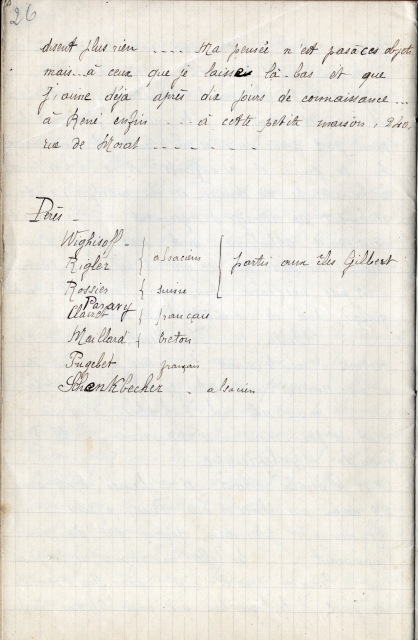 26
disent plus rien .... Ma pensée n'est pas à ces objets
mais à ceux que je laisse là-bas et que
j'aime déjà après dix jours de connaissance...
à René enfin ... à cette petite maison, 240,
rue de Morat .........
Pères -
Wghisoff -
Rigler } alsaciens
partis aux îles Gilbert
Rossier { suisse
Pararg
Clavot } français
Maillard } breton
Pugebet français
Schenkbecher - alsacien